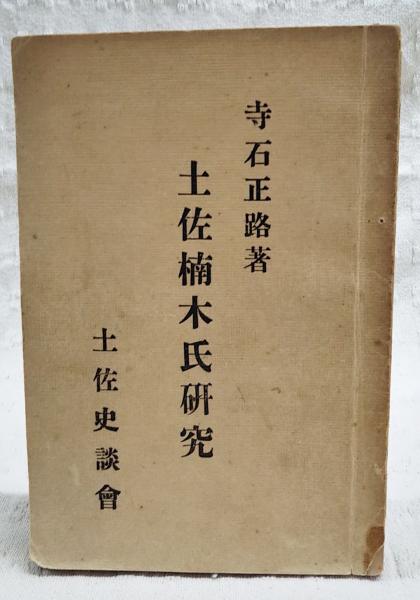 寺石正路著
土佐楠木氏研究
土佐史談會